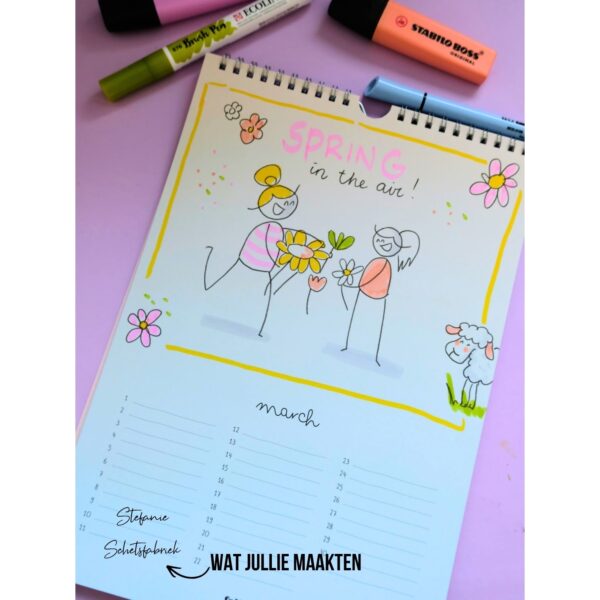 ECOLI
Brush Pen
STABILO BOSS
ORIGINAL
SPRING
in the air!
march
1
2
3
4
5
6
7
8
9
10
11
12
13
14
15
16
17
18
19
20
21
22
23
24
25
26
27
28
29
30
Stefanie
Schetsfabriek
WAT JULLIE MAAKTEN